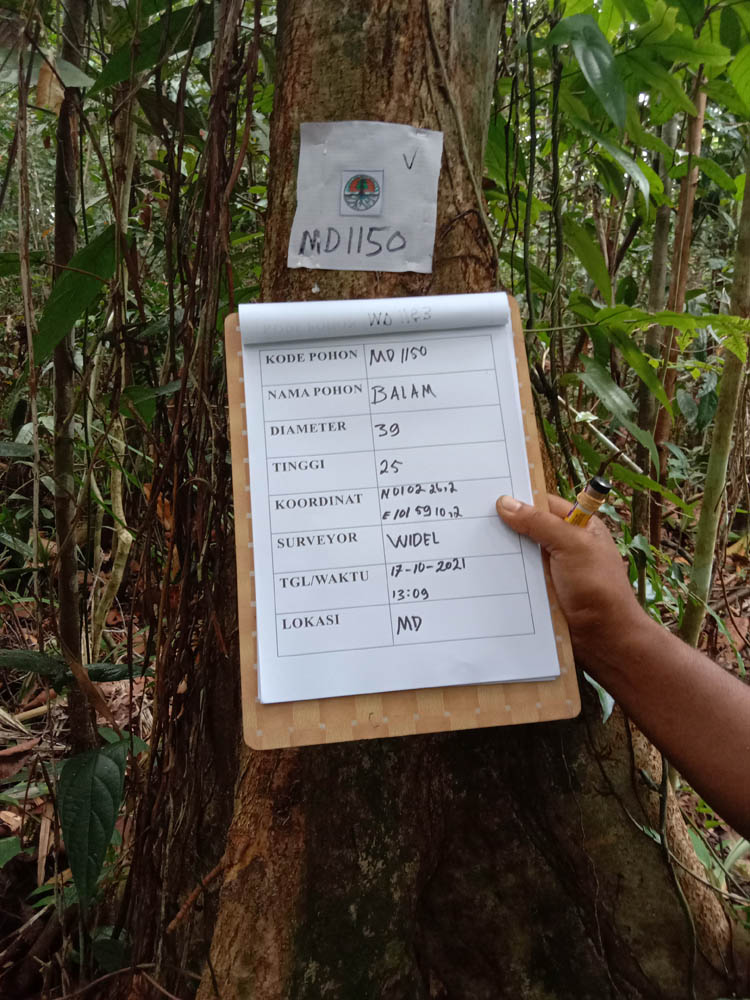 V
MD1150
KODE POHON MD1150
NAMA POHON BALAM
DIAMETER 39
TINGGI 25
KOORDINAT N0102 26,2
E101 59 10,2
SURVEYOR WIDEL
TGL/WAKTU 17-10-2021
13:09
LOKASI MD